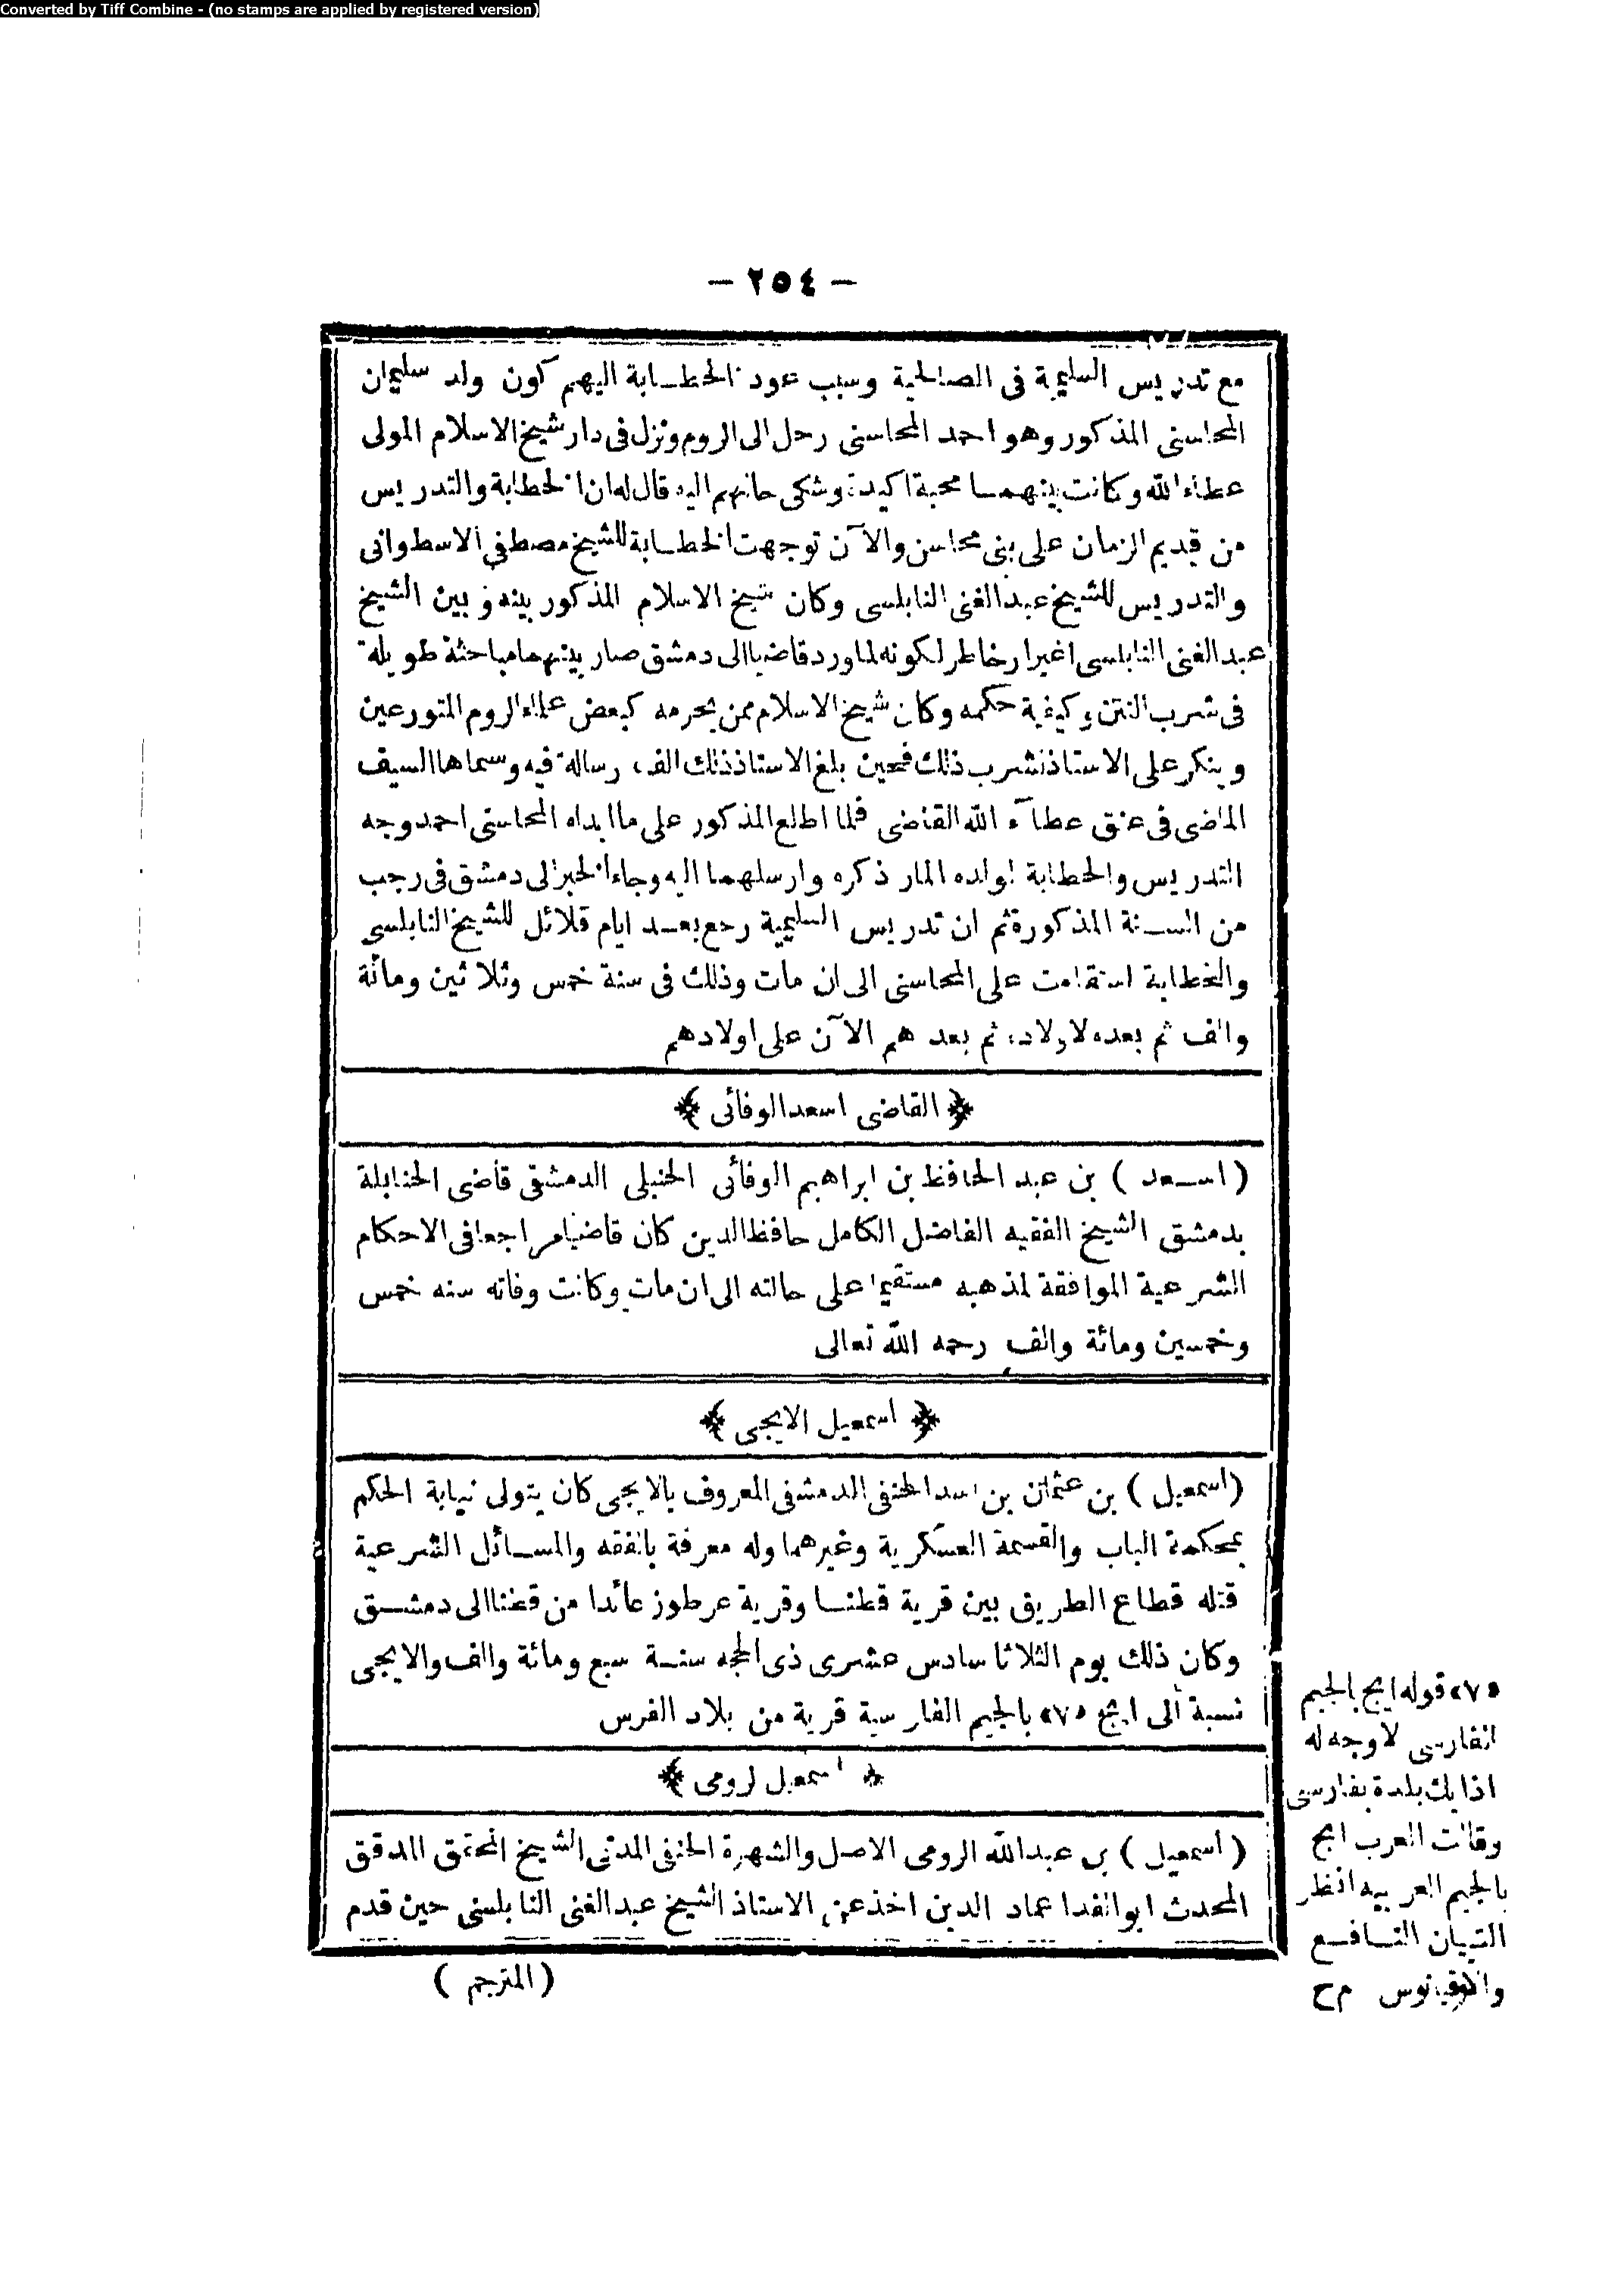 Converted by Tiff Combine - (no stamps are applied by registered version)
— ٢٥٤ —
مع تدريس السليمية فى الصالحية وسبب عود الخطابة اليهم كون ولد سليمان
المحاسنى المذكور وهو احمد المحاسنى رحل الى الروم ونزل فى دار شيخ الاسلام المولى
عطاء الله وكانت بينهما محبة اكيدة وشكى حالهم اليه قال له ان الخطابة والتدريس
من قديم الزمان على بنى محاسن والآن توجهت الخطابة للشيخ مصطفى الاسطوانى
والتدريس للشيخ عبد الغنى النابلسى وكان شيخ الاسلام المذكور بينه وبين الشيخ
عبد الغنى النابلسى اغبرار خاطر لكونه لما ورد قاضيا الى دمشق صار بينهما مباحثة طويلة
فى شرب التتن وكيفية حكمه وكان شيخ الاسلام ممن يحرمه كبعض علماء الروم المتورعين
وينكر على الاستاذ شرب ذلك فحين بلغ الاستاذ ذلك الف رسالة فيه وسماها السيف
الماضى فى عنق عطآء الله القاضى فلما اطلع المذكور على ما ابداه المحاسنى احمد وجه
التدريس والخطابة لولده المار ذكره وارسلهما اليه وجاء الخبر الى دمشق فى رجب
من السنة المذكورة ثم ان تدريس السليمية رجع بعد ايام قلائل للشيخ النابلسى
والخطابة استقامت على المحاسنى الى ان مات وذلك فى سنة خمس وثلاثين ومائة
والف ثم بعده لاولاده ثم بعد هم الآن على اولادهم
﴿ القاضى اسعد الوفائى ﴾
( اسعد ) بن عبد الحافظ بن ابراهيم الوفائى الحنبلى الدمشقى قاضى الحنابلة
بدمشق الشيخ الفقيه الفاضل الكامل حافظ الدين كان قاضيا مراجعا فى الاحكام
الشرعية الموافقة لمذهبه مستقيما على حالته الى ان مات وكانت وفاته سنه خمس
وخمسين ومائة والف رحمه الله تعالى
﴿ اسمعيل الايجى ﴾
( اسمعيل ) بن عثمان بن اسد الحنفى الدمشقى المعروف بالايجى كان يتولى نيابة الحكم
بمحكمة الباب والقسمة العسكرية وغيرهما وله معرفة بالفقه والمسائل الشرعية
قتله قطاع الطريق بين قرية قطنا وقرية عرطوز عائدا من قطنا الى دمشق
وكان ذلك يوم الثلاثا سادس عشرى ذى الحجه سنة سبع ومائة والف والايجى
نسبة الى ايج «٧» بالجيم الفارسية قرية من بلاد الفرس
﴿ اسمعيل لرومى ﴾
( اسمعيل ) بن عبدالله الرومى الاصل والشهرة الحنفى المدنى الشيخ المحقق المدقق
المحدث ابو الفدا عماد الدين اخذ عن الاستاذ الشيخ عبد الغنى النابلسى حين قدم
( المترجم )
«٧» قوله ايج بالجيم
الفارسى لا وجه له
اذ ايك بلدة بفارسى
وقالت العرب ايج
بالجيم العربيه انظر
التبيان النافع
والاوقيانوس م ح